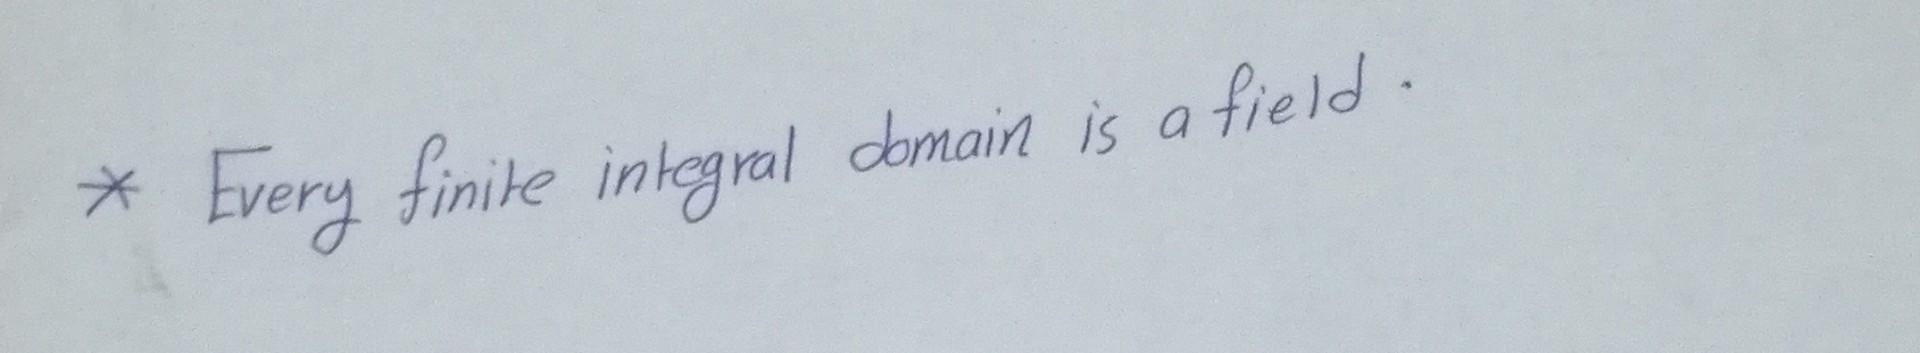 * Every finite integral domain is a field.